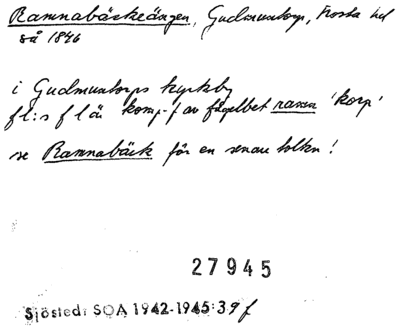 Ramnabäcksängen, Gudmuntorp, Frosta hd
så 1846
i Gudmuntorps kyrkby
f l:s f l ä komp-f av fågelbet ramn 'korp'
se Ramnabäck för en senare tolkn!
27945
Sjöstedt SOA 1942-1945:39 f